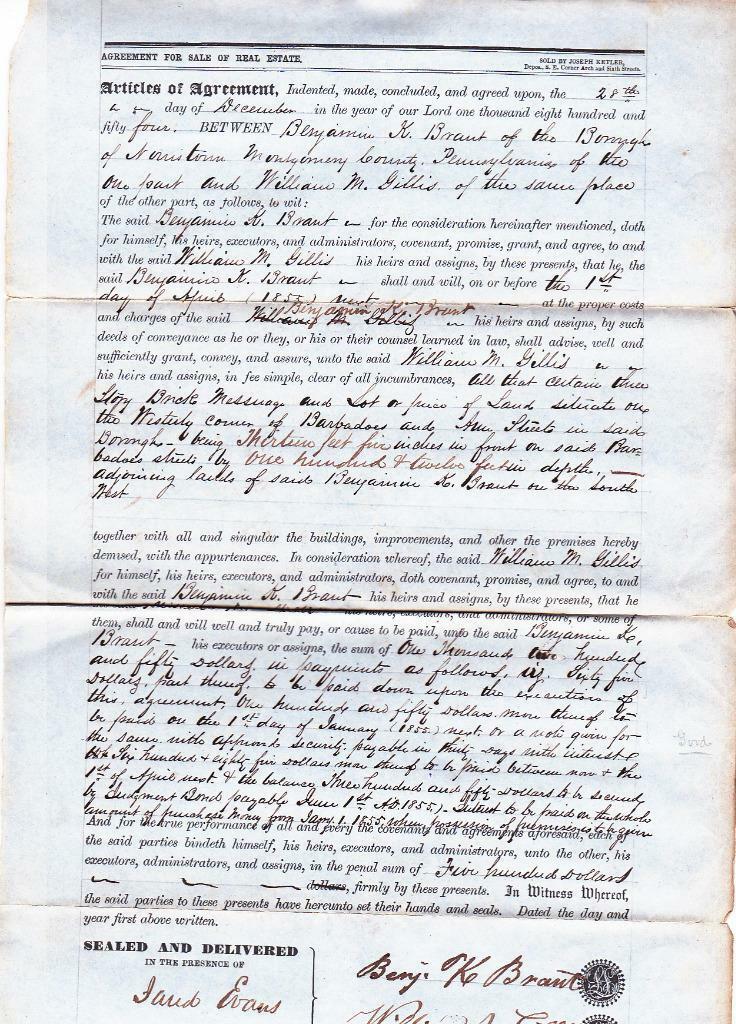 AGREEMENT FOR SALE OF REAL ESTATE.
SOLD BY JOSEPH KETLER,
Depos., S. E. Corner Arch and Sixth Streets.
Articles of Agreement, Indented, made, concluded, and agreed upon, the 28th
day of December in the year of our Lord one thousand eight hundred and
fifty four. BETWEEN Benjamin K. Brant of the Borough
of Norristown Montgomery County, Pennsylvania of the
one part and William M. Gillis of the same place
of the other part, as follows, to wit:
The said Benjamin K. Brant for the consideration hereinafter mentioned, doth
for himself, his heirs, executors, and administrators, covenant, promise, grant, and agree, to and
with the said William M. Gillis his heirs and assigns, by these presents, that he, the
said Benjamin K. Brant shall and will, on or before the 1st
day of April (1855) next at the proper costs
Benjamin K. Brant
and charges of the said William M. Gillis his heirs and assigns, by such
deeds of conveyance as he or they, or his or their counsel learned in law, shall advise, well and
sufficiently grant, convey, and assure, unto the said William M. Gillis
his heirs and assigns, in fee simple, clear of all incumbrances, All that certain three
Story Brick Messuage and Lot or piece of Land situate on
the Westerly corner of Barbadoes and Streets in said
Borough - being Thirteen feet five inches in front on said Bar-
badoes streets by one hundred & twelve feet in depth,
adjoining lands of said Benjamin K. Brant on the South
West
together with all and singular the buildings, improvements, and other the premises hereby
demised, with the appurtenances. In consideration whereof, the said William M. Gillis
for himself, his heirs, executors, and administrators, doth covenant, promise, and agree, to and
with the said Benjamin K. Brant his heirs and assigns, by these presents, that he
his heirs, executors, and administrators, or some of
them, shall and will well and truly pay, or cause to be paid, unto the said Benjamin K.
Brant - his executors or assigns, the sum of One Thousand two hundred
and fifty Dollars, in payments as follows, viz. Sixty five
Dollars, part thereof, to be paid down upon the execution of
this agreement, One hundred and fifty Dollars more thereof to
be paid on the 1st day of January (1855) next or a note given for
the same with approved security payable in thirty Days with interest &
Six hundred & eighty five Dollars more thereof to be paid between now & the
1st of April next & the balance Three hundred and fifty Dollars to be secured
by Judgment Bond payable June 1st A.D. 1855.) Interest to be paid on the whole
amount of purchase money from Jany. 1. 1855, when possession of premises is to be given
And for the true performance of all and every the covenants and agreements aforesaid, each of
the said parties bindeth himself, his heirs, executors, and administrators, unto the other, his
executors, administrators, and assigns, in the penal sum of Five hundred Dollars
dollars, firmly by these presents. In Witness Whereof,
the said parties to these presents have hereunto set their hands and seals. Dated the day and
year first above written.
SEALED AND DELIVERED
IN THE PRESENCE OF
Jared Evans
Benj. K Brant
Good